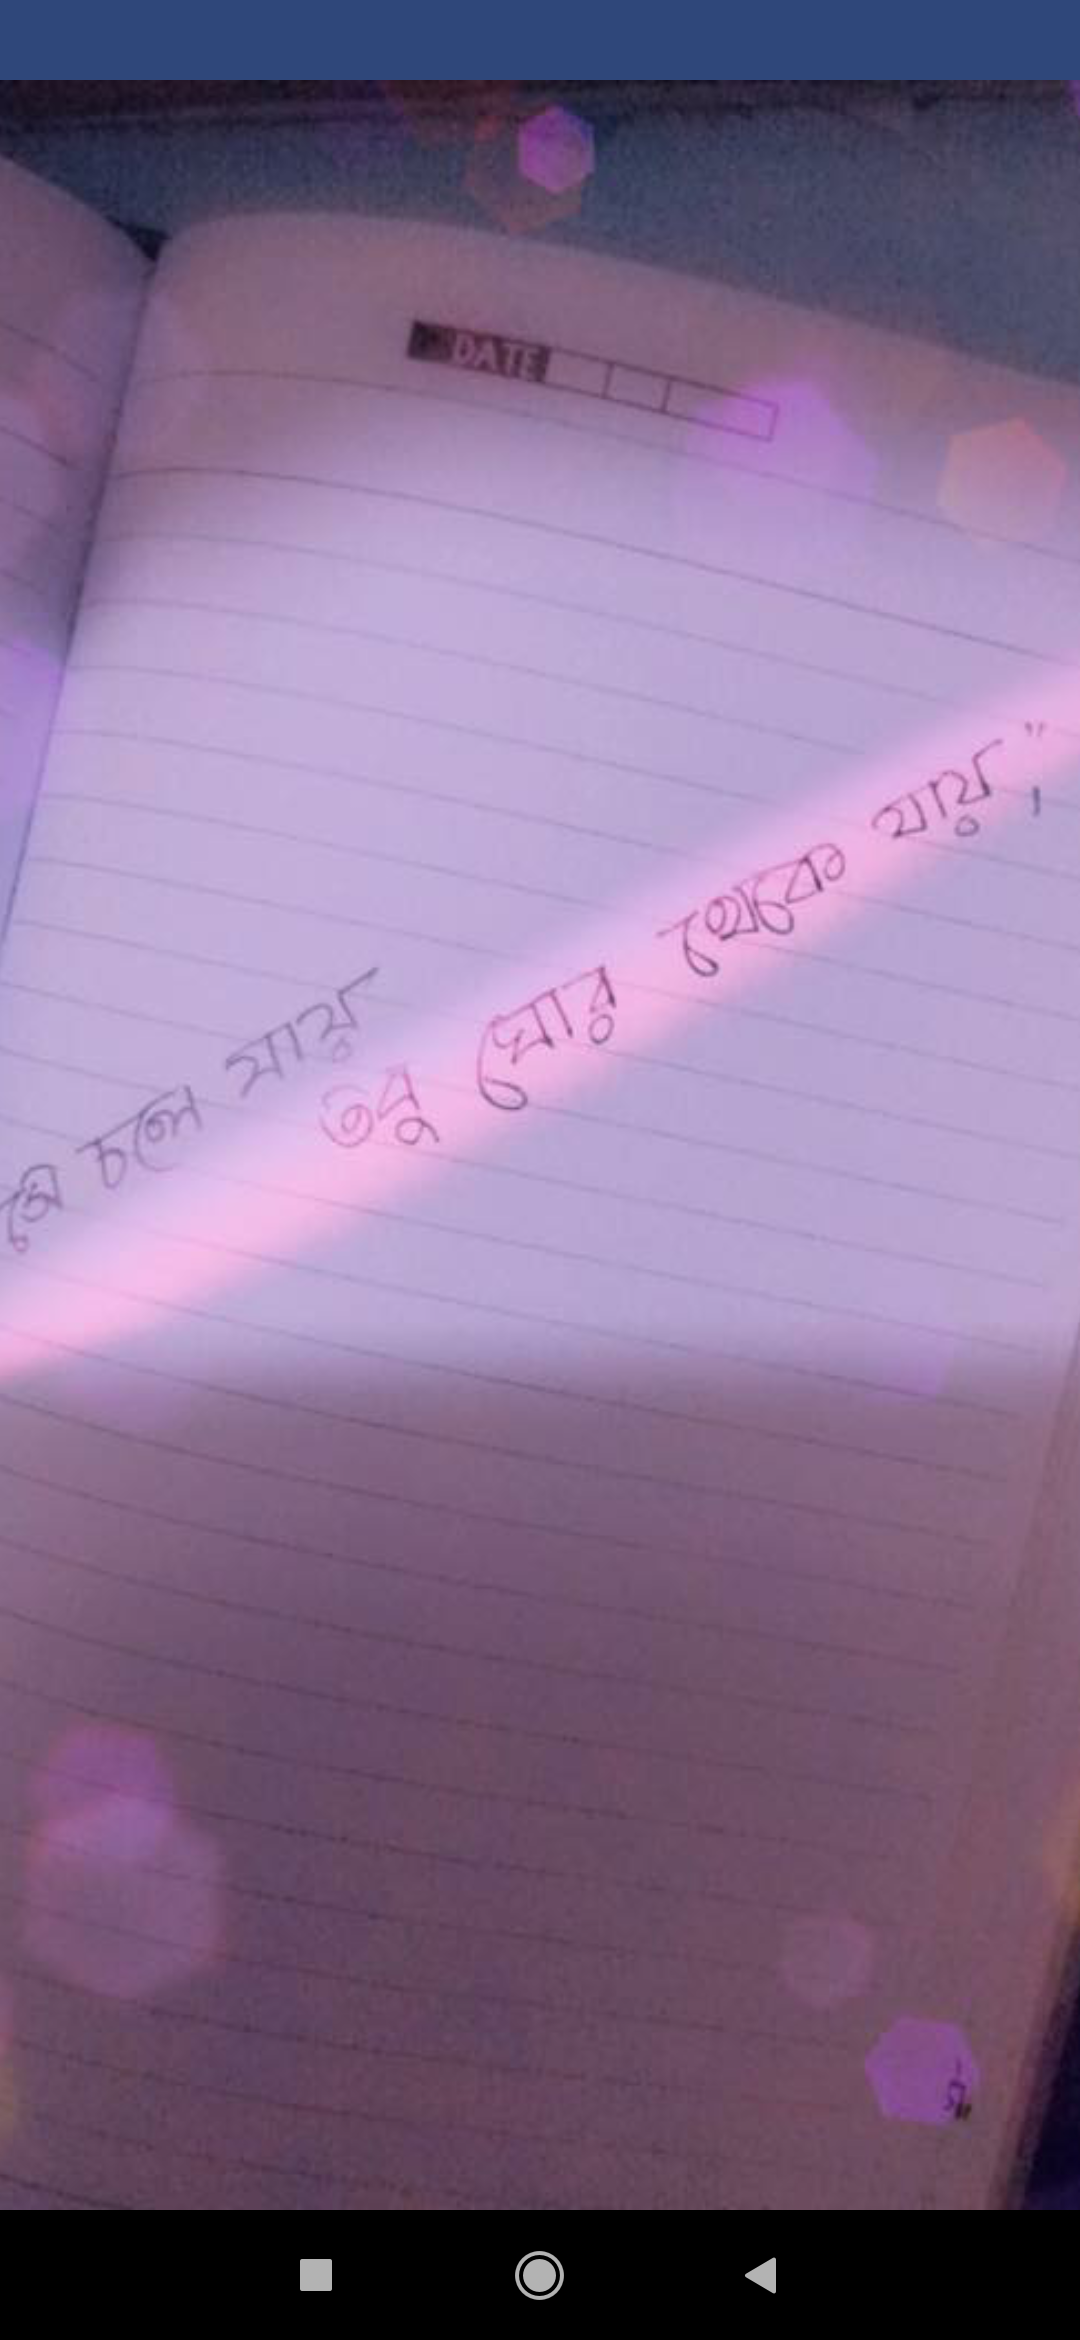 DATE
সে চলে যায়
তবু ঘোর থেকে যায়,"